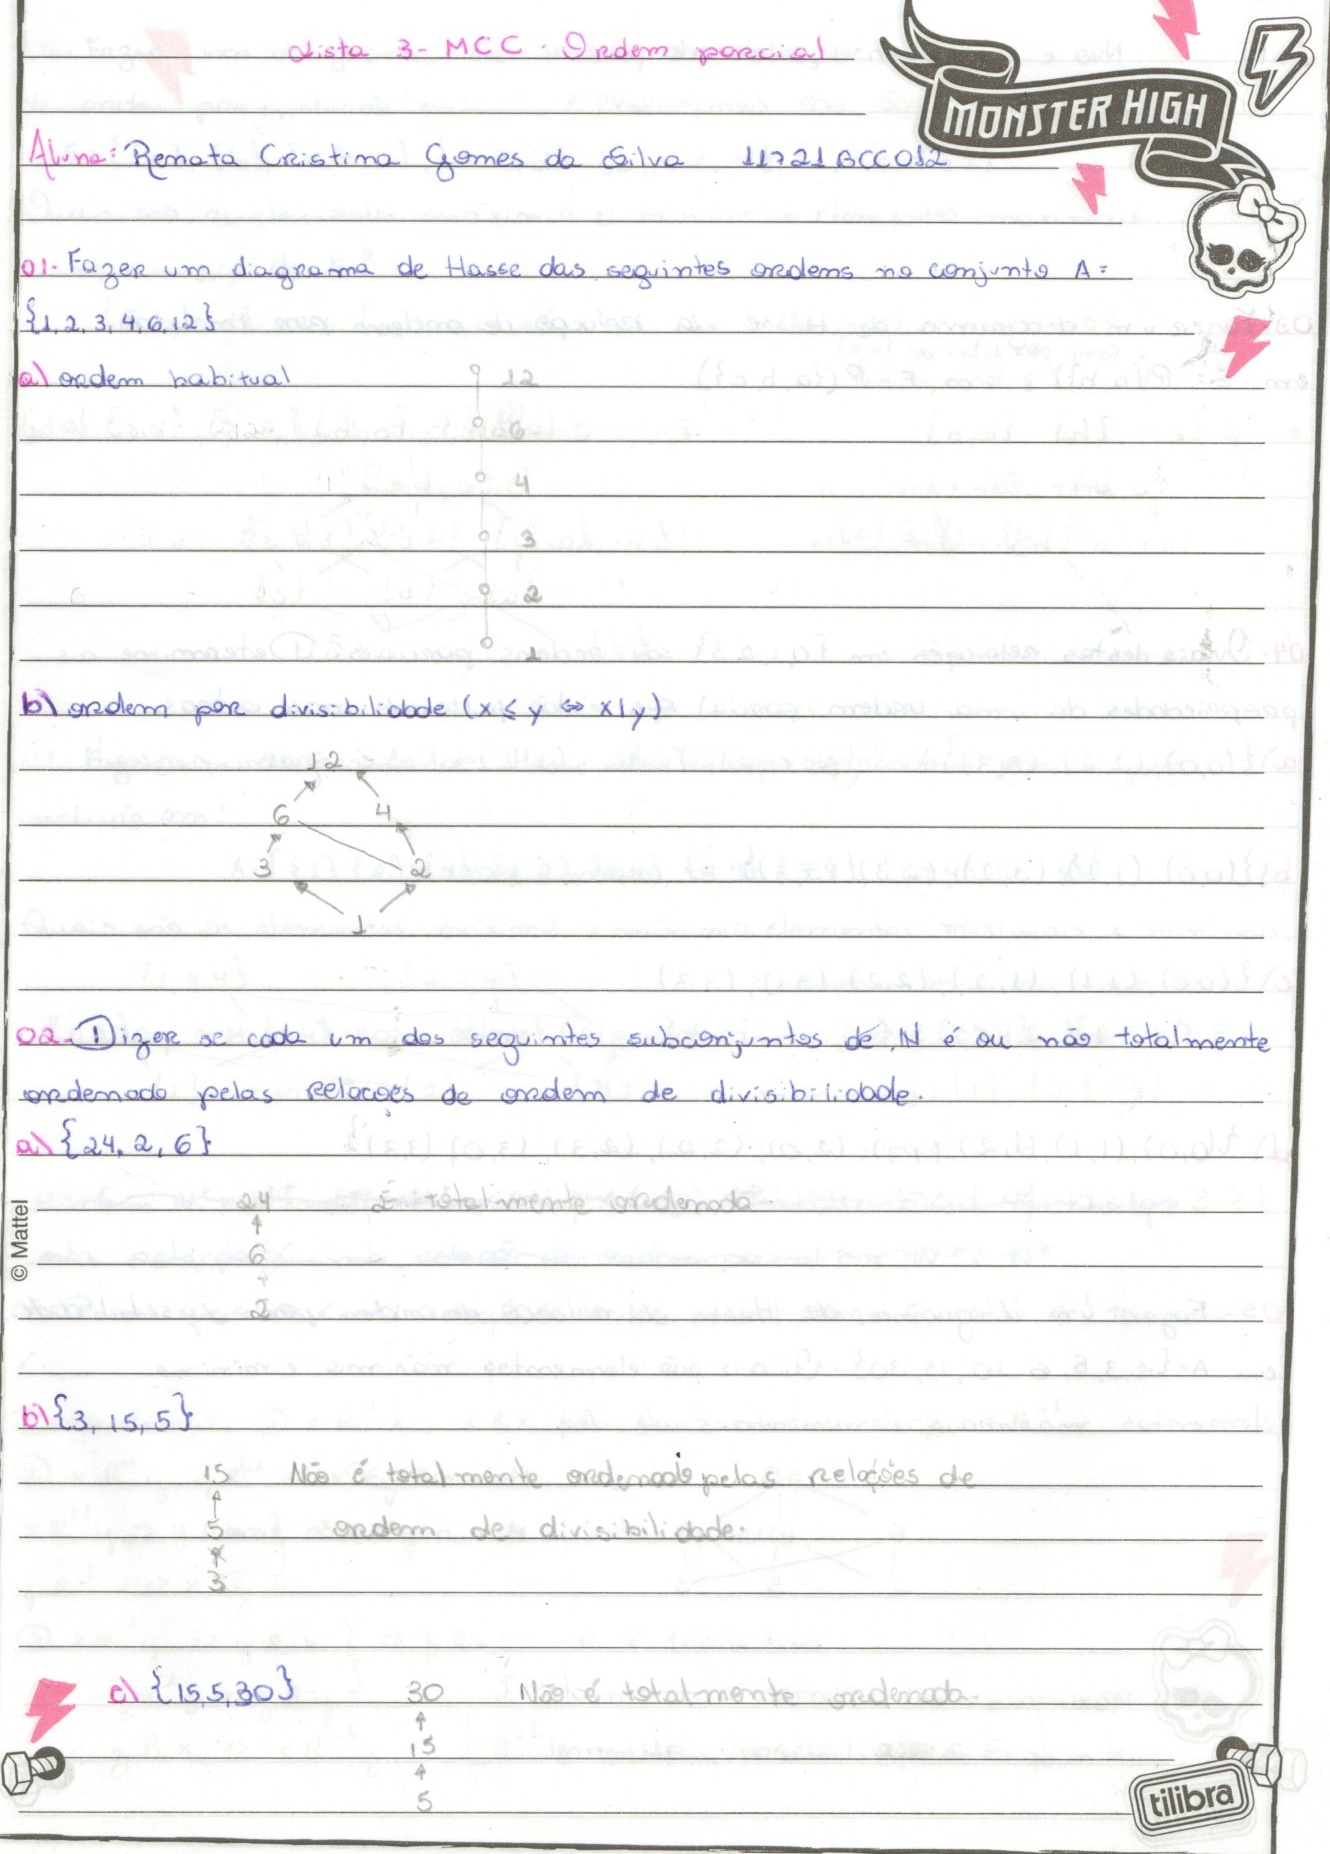 Lista 3- MCC: Ordem parcial
MONSTER HIGH
Aluna: Renata Cristina Gomes da Silva 11721BCC012
01- Fazer um diagrama de Hasse das seguintes ordens no conjunto A=
{1,2,3,4,6,12}
a) ordem habitual
12
6
4
3
2
1
b) ordem por divisibilidade (x ≤ y ⇔ x|y)
12
6 4
3 2
1
02- Dizer se cada um dos seguintes subconjuntos de N é ou não totalmente
ordenado pelas relações de ordem de divisibilidade.
a) {24, 2, 6}
24 É totalmente ordenado.
6
2
© Mattel
b) {3, 15, 5}
15 Não é totalmente ordenado pelas relações de
5 ordem de divisibilidade.
3
c) {15,5,30} 30 Não é totalmente ordenado.
15
5
tilibra